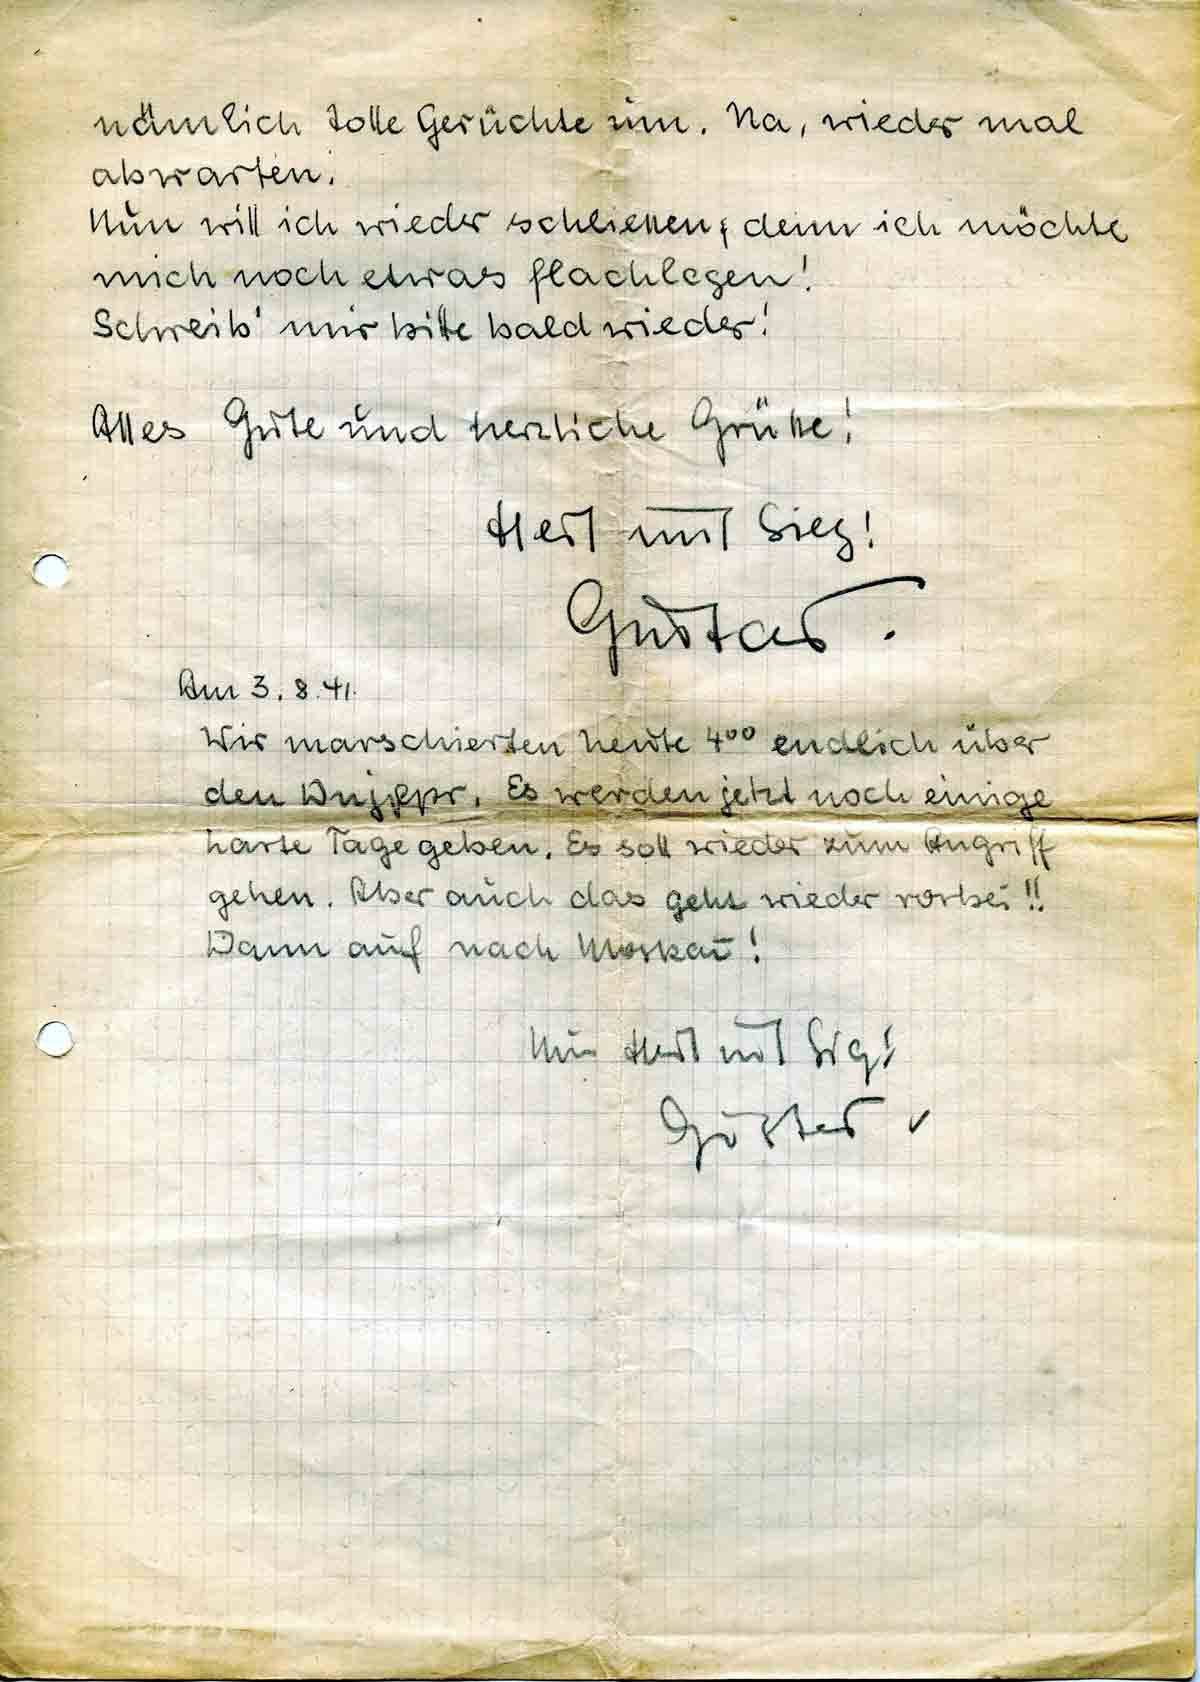 nämlich tolle Gerüchte um. Na, wieder mal
abwarten.
Nun will ich wieder schließen, denn ich möchte
mich noch etwas flachlegen!
Schreib' mir bitte bald wieder!
Alles Gute und herzliche Grüße!
Heil und Sieg!
Gustav.
Am 3.8.41.
Wir marschierten heute 4⁰⁰ endlich über
den Dnjepr. Es werden jetzt noch einige
harte Tage geben. Es soll wieder zum Angriff
gehen. Aber auch das geht wieder vorbei!!
Dann auf nach Moskau!
Nun Heil und Sieg!
Gustav